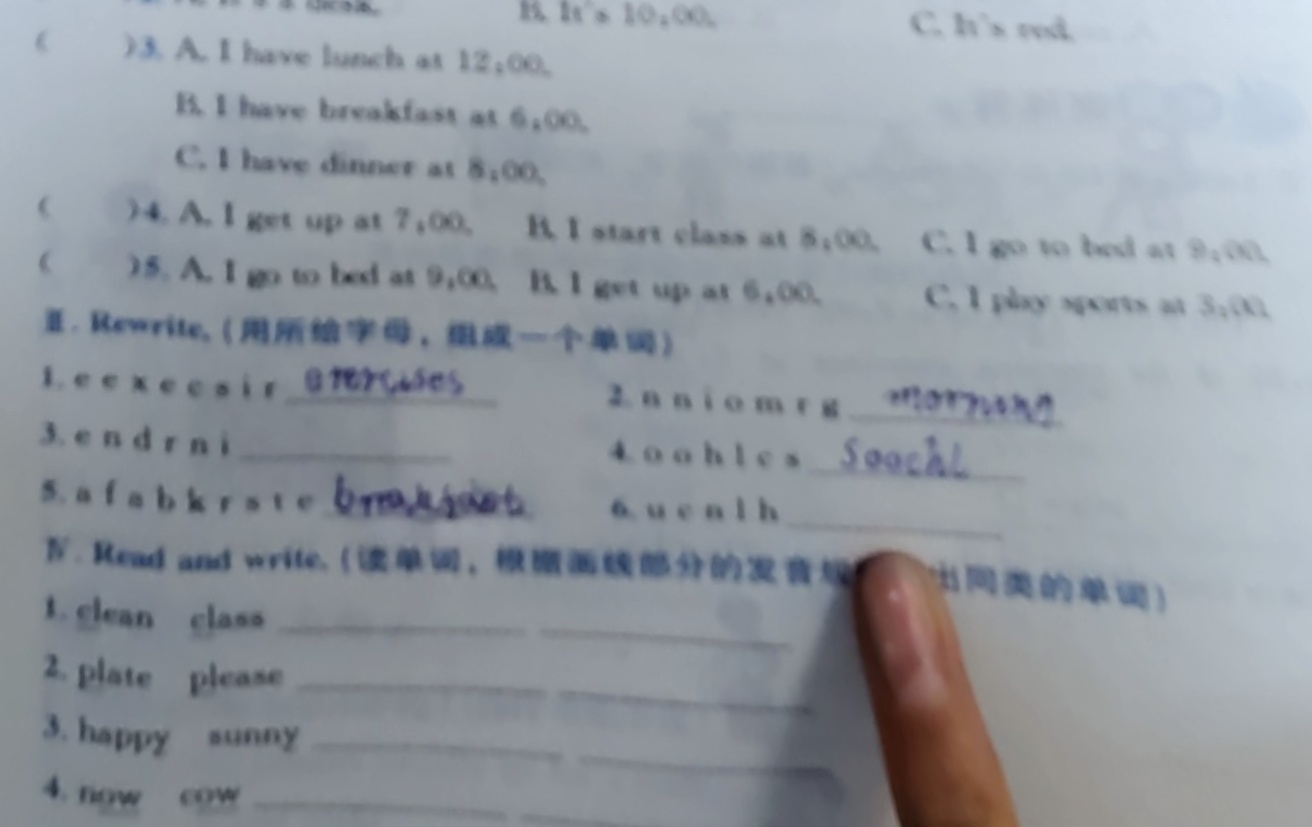 B. It's 10:00. C. It's red.
( )3. A. I have lunch at 12:00.
B. I have breakfast at 6:00.
C. I have dinner at 8:00.
( )4. A. I get up at 7:00. B. I start class at 8:00. C. I go to bed at 9:00.
( )5. A. I go to bed at 9:00. B. I get up at 6:00. C. I play sports at 5:00.
Ⅲ. Rewrite. (用所给字母，组成一个单词)
1. e e x e c s i r exercises 2. n n i o m r g morning
3. e n d r n i 4. o o h l c s Soochl
5. a f a b k r s t e breakfast 6. u c n l h
Ⅳ. Read and write. (读单词，根据画线部分的发音 出同类的单词)
1. clean class
2. plate please
3. happy sunny
4. now cow